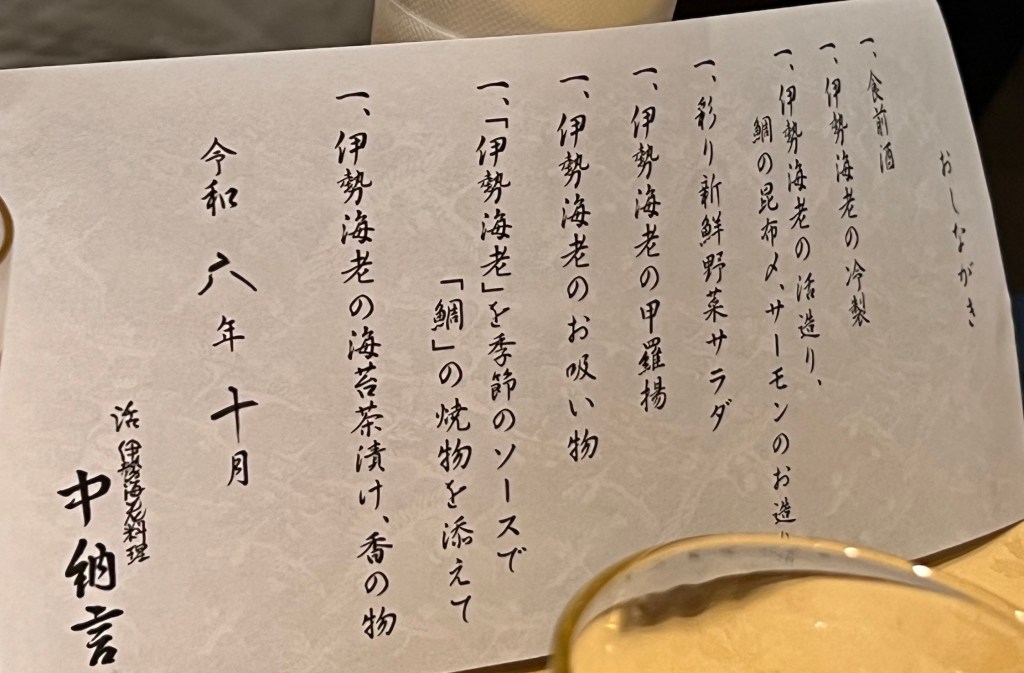 おしながき
一、食前酒
一、伊勢海老の冷製
一、伊勢海老の活造り、
鯛の昆布〆、サーモンのお造り
一、彩り新鮮野菜サラダ
一、伊勢海老の甲羅揚
一、伊勢海老のお吸い物
一、「伊勢海老」を季節のソースで
「鯛」の焼物を添えて
一、伊勢海老の海苔茶漬け、香の物
令和六年十月
活伊勢海老料理
中納言